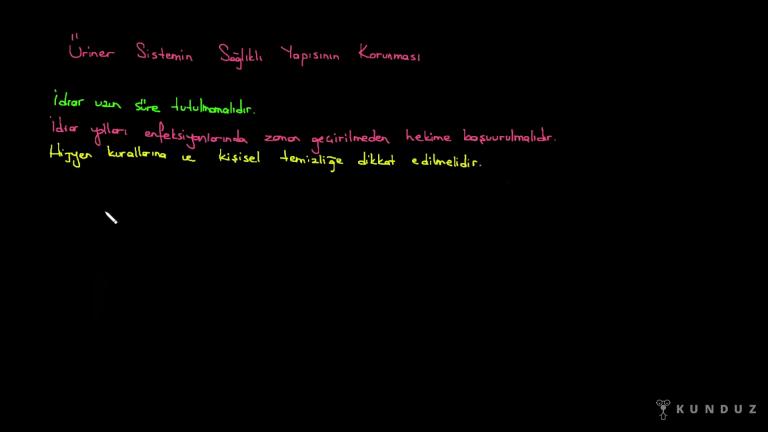 Üriner Sistemin Sağlıklı Yapısının Korunması
İdrar uzun süre tutulmamalıdır.
İdrar yolları enfeksiyonlarında zaman geçirilmeden hekime başvurulmalıdır.
Hijyen kurallarına ve kişisel temizliğe dikkat edilmelidir.
KUNDUZ